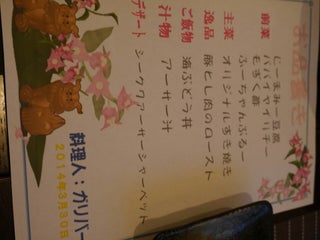 お品書き
前菜 じーまみー豆腐
パパイヤイリチー
もずく酢
主菜 ふーちゃんぷるー
オリジナルすき焼き
逸品 豚とし肉のロースト
ご飯物 海ぶどう丼
汁物 アーサー汁
デザート シークワーサーシャーベット
料理人：ガリバー
2014年3月30日